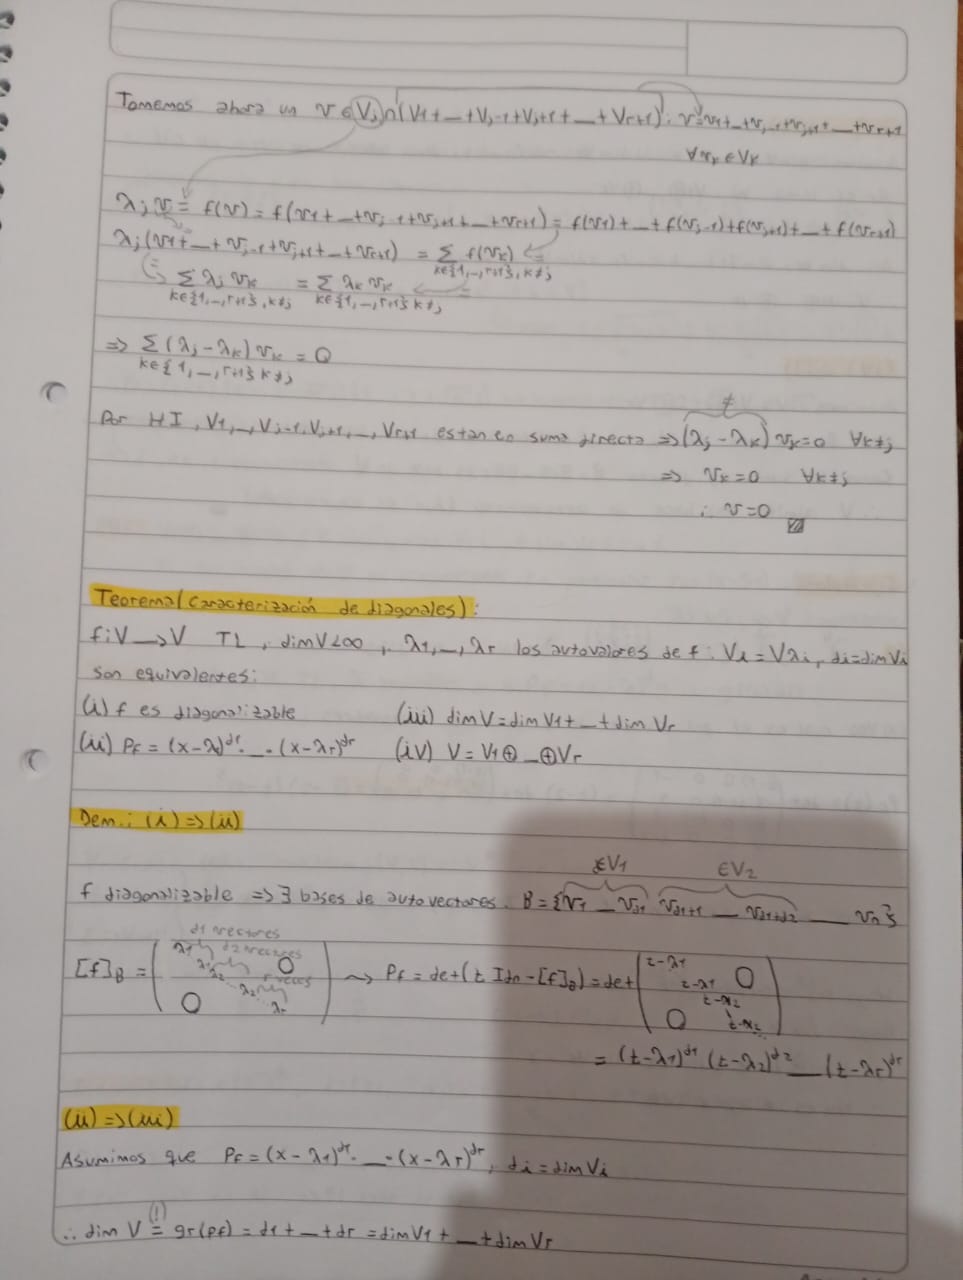 Tomemos ahora un v ∈ Vj ∩ (V1 + _ + Vj-1 + Vj+1 + _ + Vr+1) : v = v1 + _ + vj-1 + vj+1 + _ + vr+1
∀ vk ∈ Vk
λj v = f(v) = f(v1 + _ + vj-1 + vj+1 + _ + vr+1) = f(v1) + _ + f(vj-1) + f(vj+1) + _ + f(vr+1)
λj (v1 + _ + vj-1 + vj+1 + _ + vr+1) = Σ f(vk)
k∈{1,_,r+1}, k≠j
Σ λj vk = Σ λk vk
k∈{1,_,r+1}, k≠j k∈{1,_,r+1} k≠j
=> Σ (λj - λk) vk = 0
k∈{1,_,r+1} k≠j
≠
Por HI, V1,_,Vj-1,Vj+1,_,Vr+1 estan en suma directa => (λj - λk) vk = 0 ∀k≠j
=> vk = 0 ∀k≠j
∴ v = 0
Teorema (Caracterización de diagonales):
f: V → V TL, dim V < ∞, λ1,_,λr los autovalores de f : Vi = Vλi, di = dim Vi
son equivalentes:
(i) f es diagonalizable (iii) dim V = dim V1 + _ + dim Vr
(ii) Pf = (x - λ)^d1 · _ · (x - λr)^dr (iv) V = V1 ⊕ _ ⊕ Vr
Dem.: (i) => (ii)
∈V1 ∈V2
f diagonalizable => ∃ bases de autovectores. B = {v1 _ vd1 vd1+1 _ vd1+d2 _ vn}
d1 vectores
λ1 d2 vectores
[f]B = ( λ1 λ2 λ2 λr 0 0 ) ⇝ Pf = det(t Idn - [f]B) = det ( t-λ1 t-λ1 t-λ2 t-λ2 0 0 )
= (t - λ1)^d1 (t - λ2)^d2 _ (t - λr)^dr
(ii) => (iii)
Asumimos que Pf = (x - λ1)^d1 · _ · (x - λr)^dr, di = dim Vi
(!)
∴ dim V = gr(pf) = d1 + _ + dr = dim V1 + _ + dim Vr